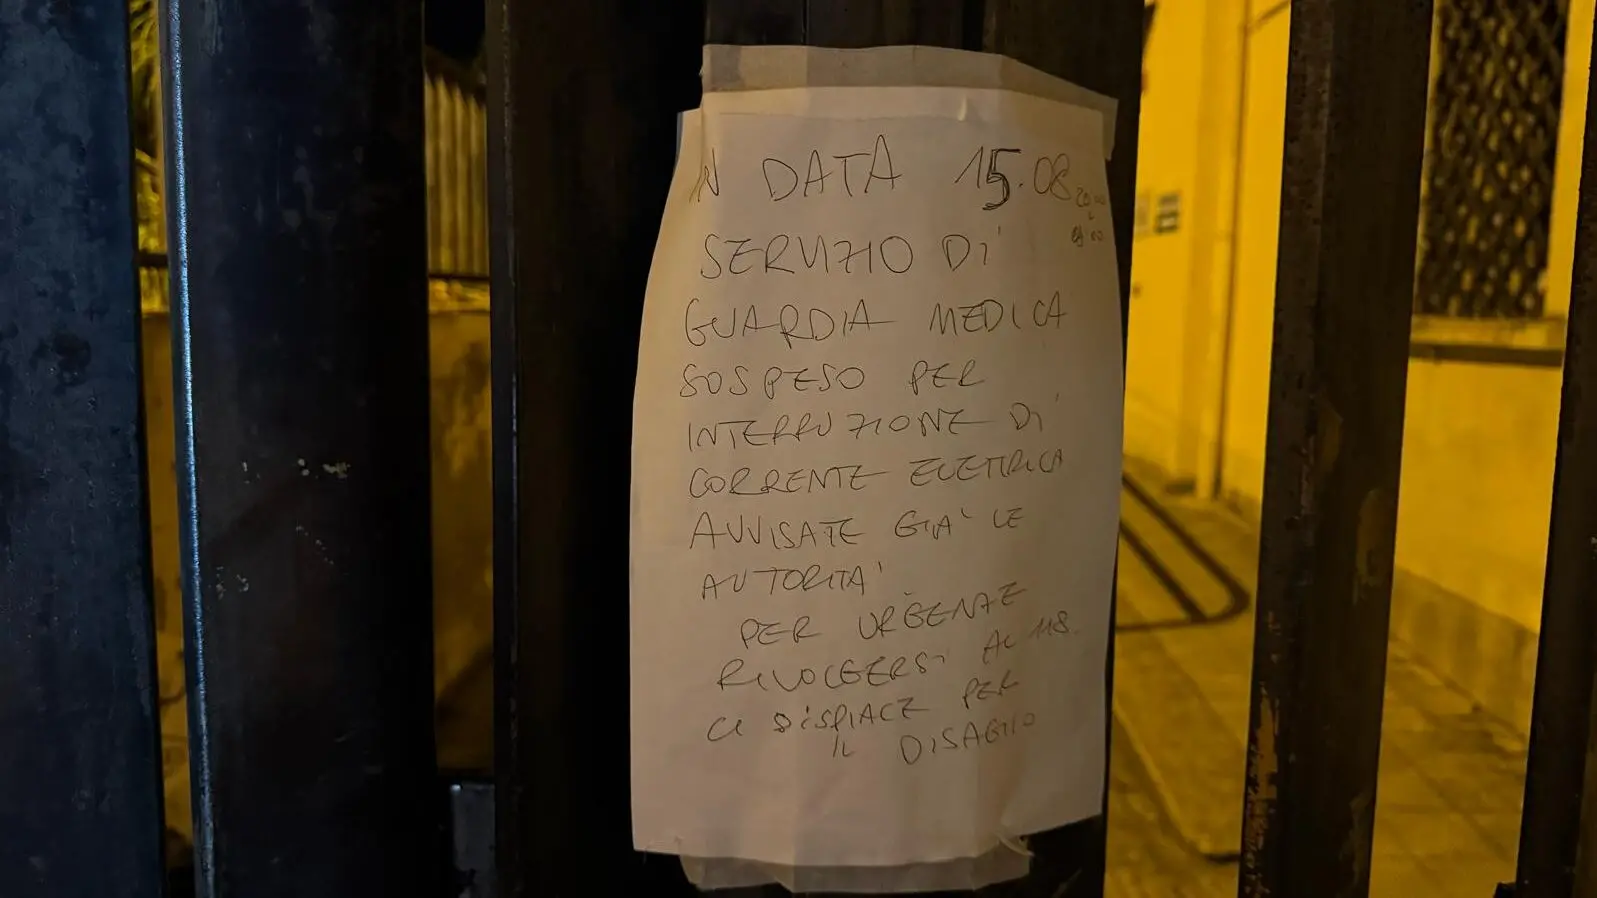 IN DATA 15.08 20.00
SERVIZIO DI
GUARDIA MEDICA
SOSPESO PER
INTERRUZIONE DI
CORRENTE ELETTRICA
AVVISATE GIA' LE
AUTORITA'
PER URGENZE
RIVOLGERSI AL 118.
CI DISPIACE PER
IL DISAGIO